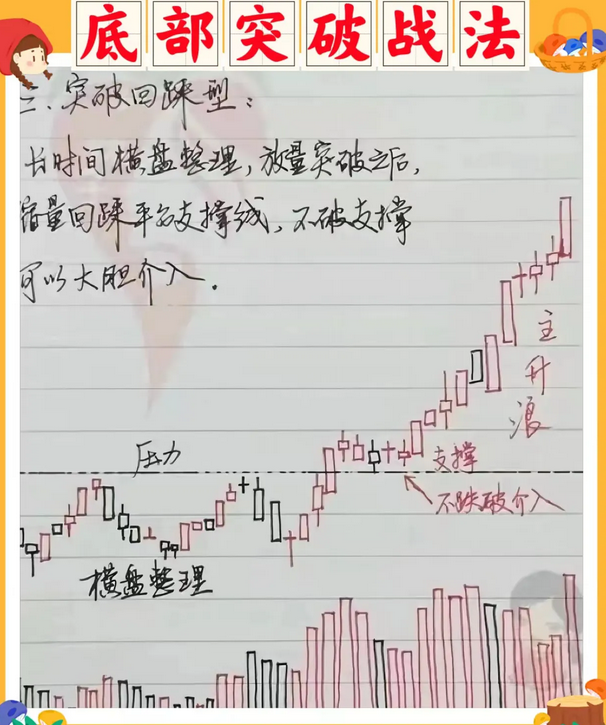 底部突破战法
二、突破回踩型：
长时间横盘整理，放量突破之后，
缩量回踩平台支撑线，不破支撑
可以大胆介入。
主升浪
压力
支撑
不跌破介入
横盘整理